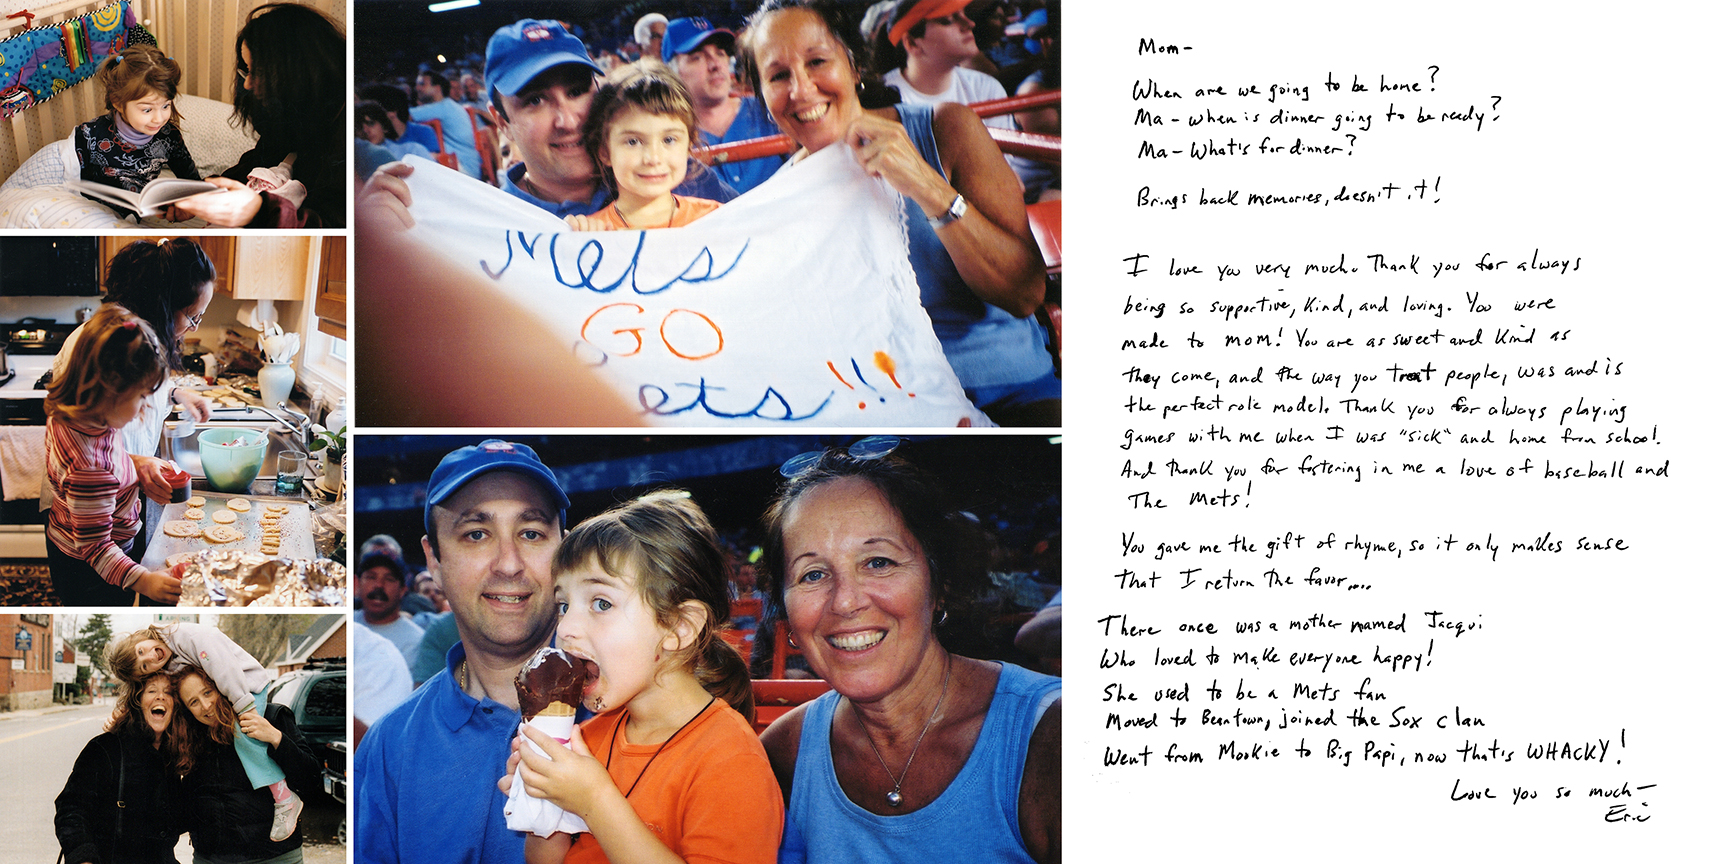 Mets
GO
ets!!!
Mom-
When are we going to be home?
Ma - when is dinner going to be ready?
Ma - What's for dinner?
Brings back memories, doesn't it!
I love you very much. Thank you for always
being so supportive, kind, and loving. You were
made to mom! You are as sweet and kind as
they come, and the way you treat people, was and is
the perfect role model. Thank you for always playing
games with me when I was "sick" and home from school.
And thank you for fostering in me a love of baseball and
The Mets!
You gave me the gift of rhyme, so it only makes sense
that I return the favor....
There once was a mother named Jacqui
Who loved to make everyone happy!
She used to be a Mets fan
Moved to Beantown, joined the Sox clan
Went from Mookie to Big Papi, now that's WHACKY!
Love you so much-
Eric